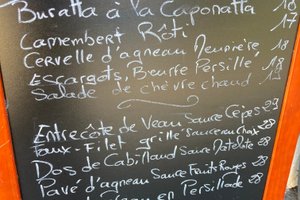 Buratta à la Caponatta 18
Camembert Rôti 17
Cervelle d'agneau Meunière 18
Escargots, Beurre Persillé 18
Salade de chèvre chaud 19
Entrecôte de Veau Sauce Cèpes 29
Faux-Filet grillé sauce au choix 28
Dos de Cabillaud Sauce 28
Pavé d'agneau Sauce Fruits Rouges 28
en Persillade 28